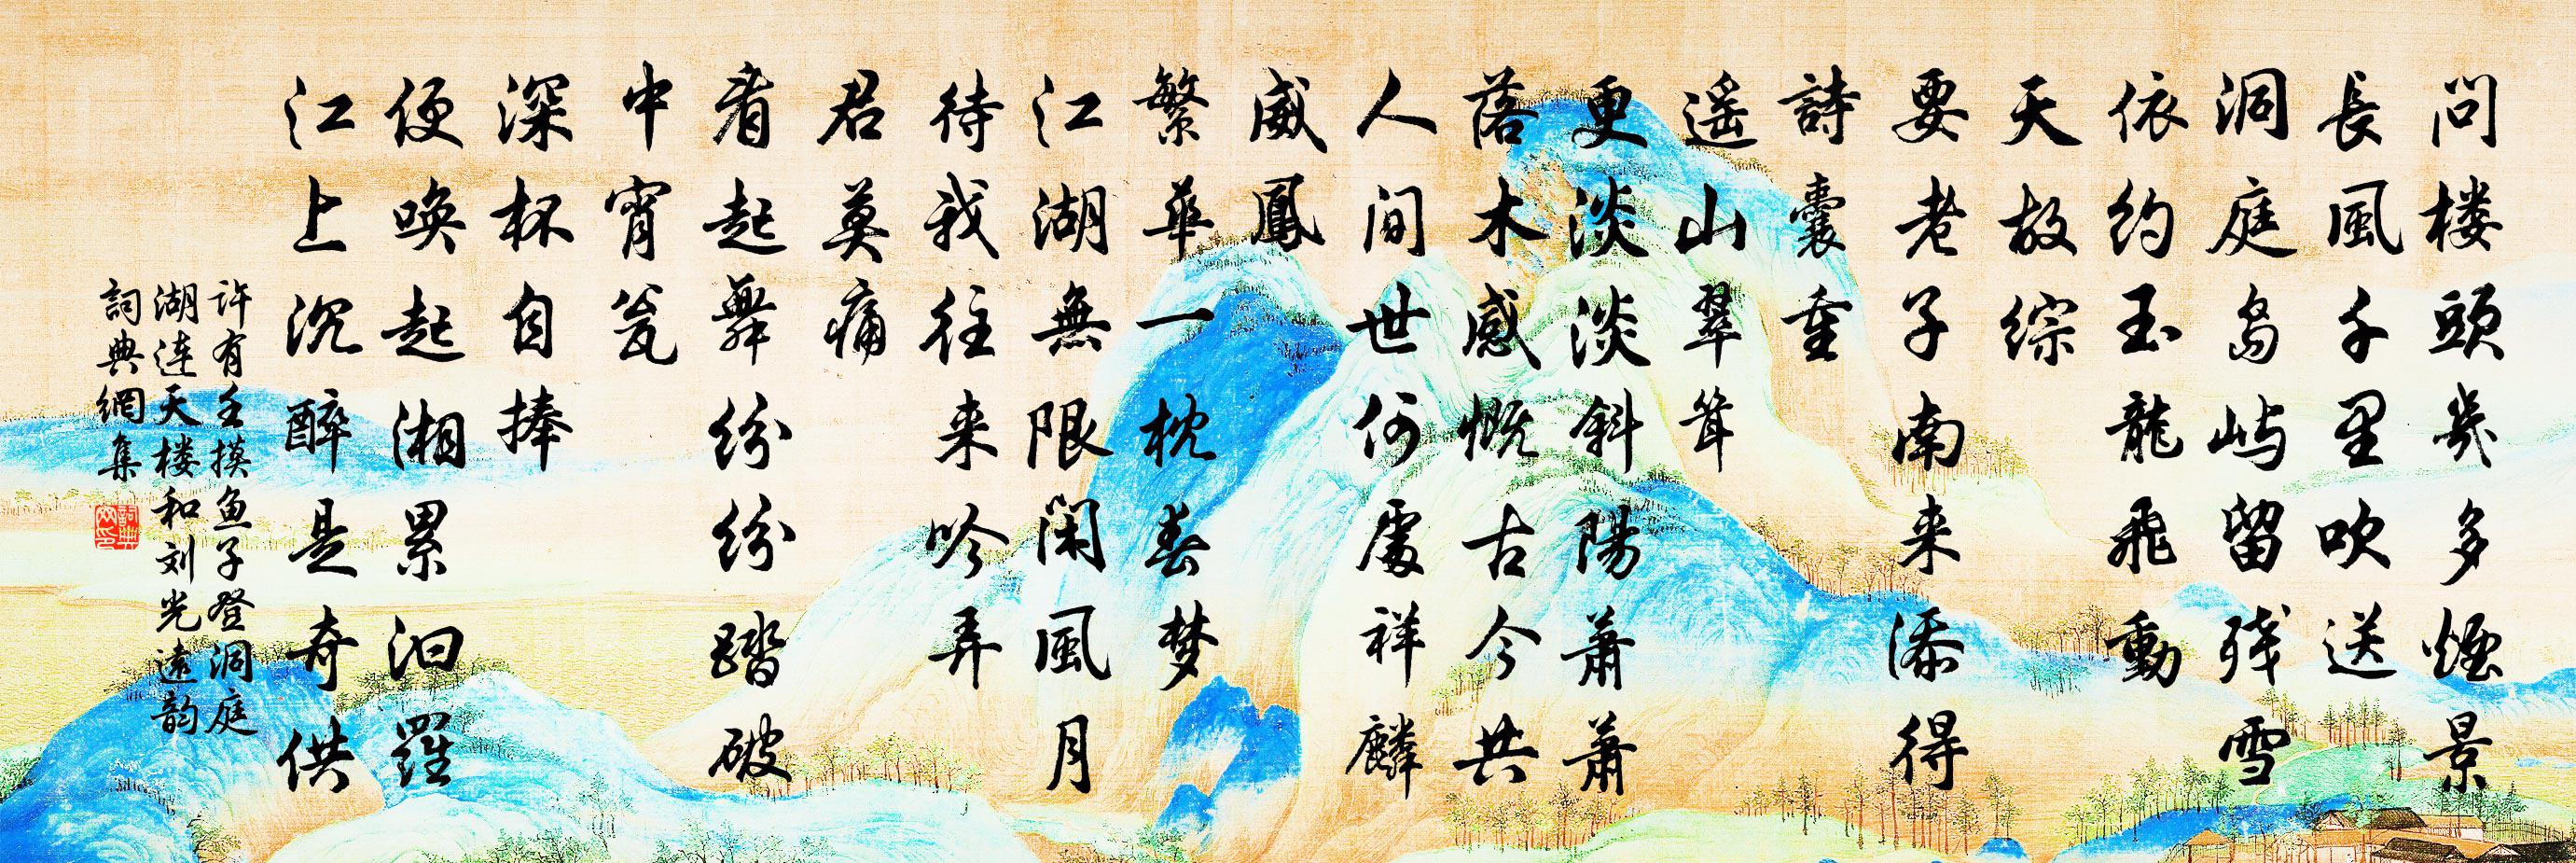 問楼頭幾多煙景
長風千里吹送
洞庭島屿留残雪
依約玉龍飛動
天故综
要老子南来添得
詩囊重
遥山翠耸
更淡淡斜陽蕭蕭
落木感慨古今共
人间世何處祥麟
威鳳
繁華一枕春梦
江湖無限闲風月
待我往来吟弄
君莫痛
看起舞紛紛踏破
中宵瓮
深杯自捧
便唤起湘累汨羅
江上沉醉是奇供
许有壬摸鱼子登洞庭
湖连天楼和刘光遠韵
詞典網集